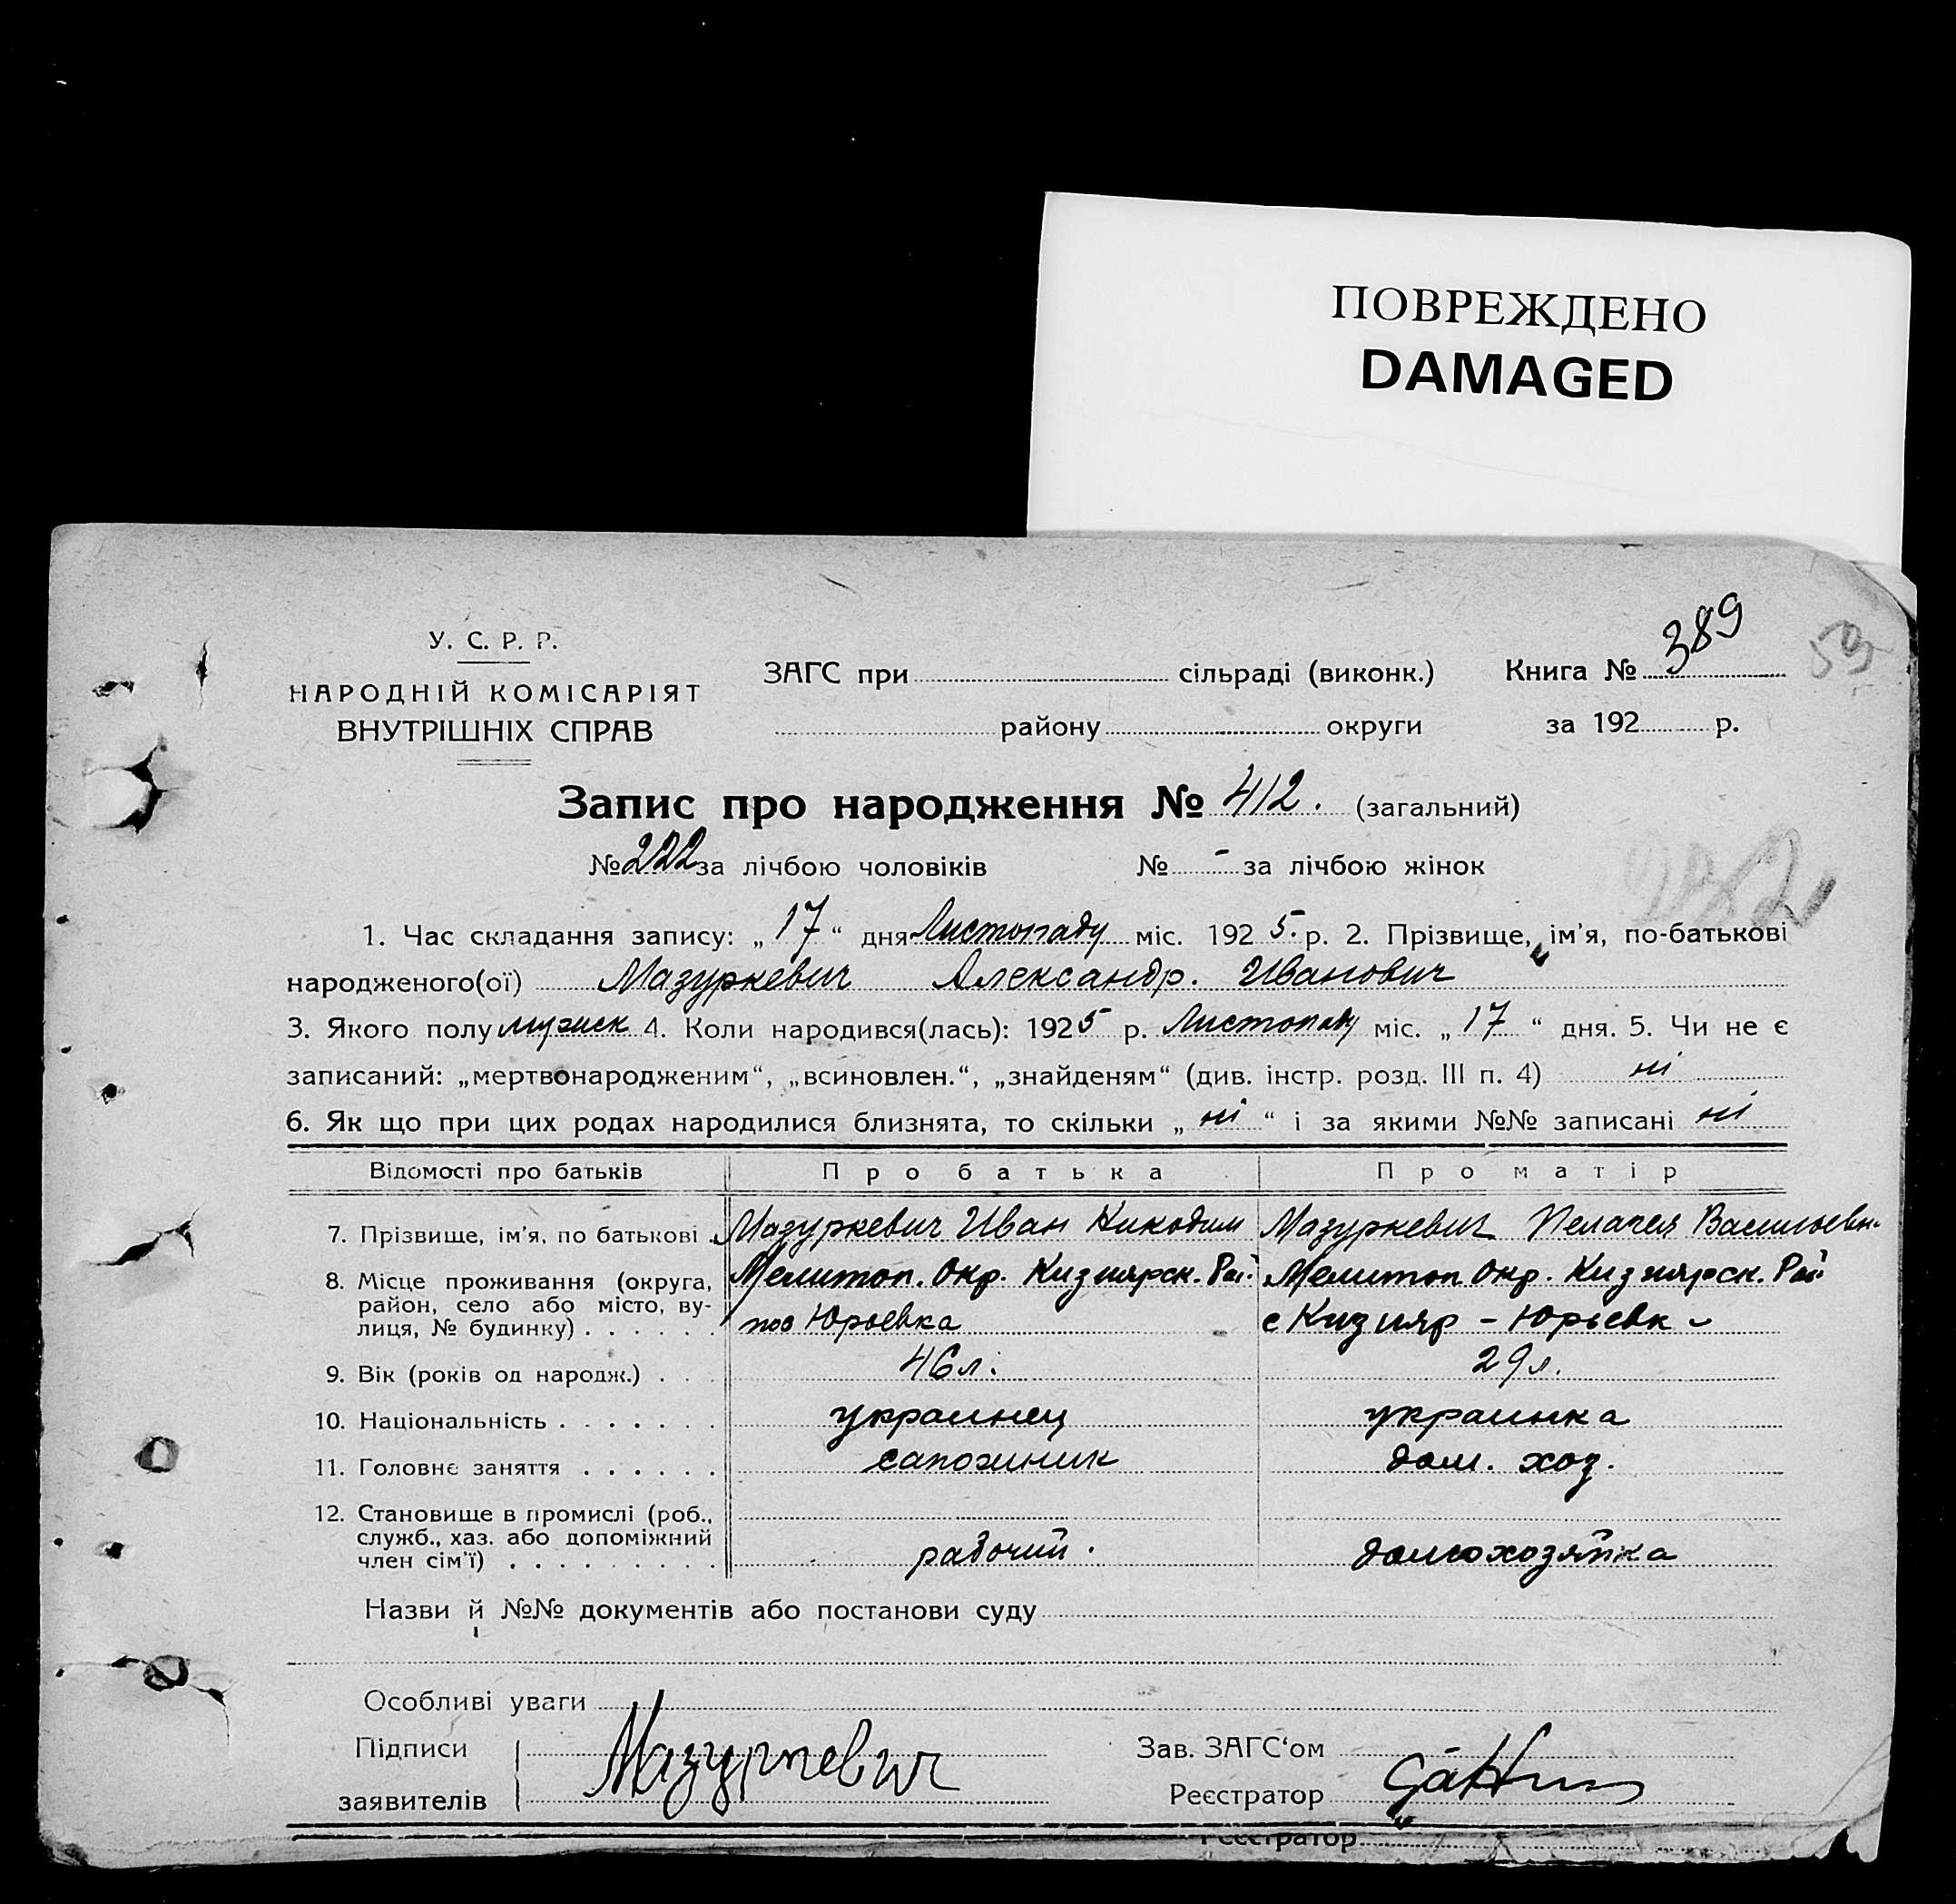 ПОВРЕЖДЕНО
DAMAGED
389
53
У. С. Р. Р.
НАРОДНІЙ КОМІСАРІЯТ
ВНУТРІШНІХ СПРАВ
ЗАГС при сільраді (виконк.) Книга №
району округи за 192 р.
Запис про народження № 412. (загальний)
№ 222 за лічбою чоловіків № - за лічбою жінок
1. Час складання запису: „ 17 “ дня Листопаду міс. 192 5. р. 2. Прізвище, ім'я, по-батькові
народженого(ої) Мазуркевич Александр. Иванович
3. Якого полу мужск 4. Коли народився(лась): 1925 р. Листопаду міс. „ 17 “ дня. 5. Чи не є
записаний: „мертвонародженим“, „всиновлен.“, „знайденям“ (див. інстр. розд. III п. 4) ні
6. Як що при цих родах народилися близнята, то скільки „ ні “ і за якими №№ записані ні
Відомості про батьків Про батька Про матір
7. Прізвище, ім'я, по батькові Мазуркевич Иван Никодим Мазуркевич Пелагея Васильевн.
8. Місце проживання (округа, Мелитоп. Окр. Кизиярск. Рай. Мелитоп. Окр. Кизиярск. Рай
район, село або місто, ву-
лиця, № будинку) . . . . . . пос Юрьевка с Кизияр - Юрьевк
9. Вік (років од народж.) . . . 46 л. 29 л.
10. Національність . . . . . . . украинец украинка
11. Головне заняття . . . . . . сапожник дом. хоз.
12. Становище в промислі (роб.,
служб., хаз. або допоміжний
член сім'ї) . . . . . . . . . рабочий. домохозяйка
Назви й №№ документів або постанови суду
Особливі уваги
Підписи Мазуркевич Зав. ЗАГС‘ом
заявителів Реєстратор
Реєстратор